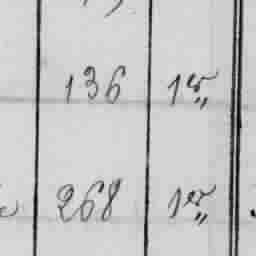 136 1er
268 1er